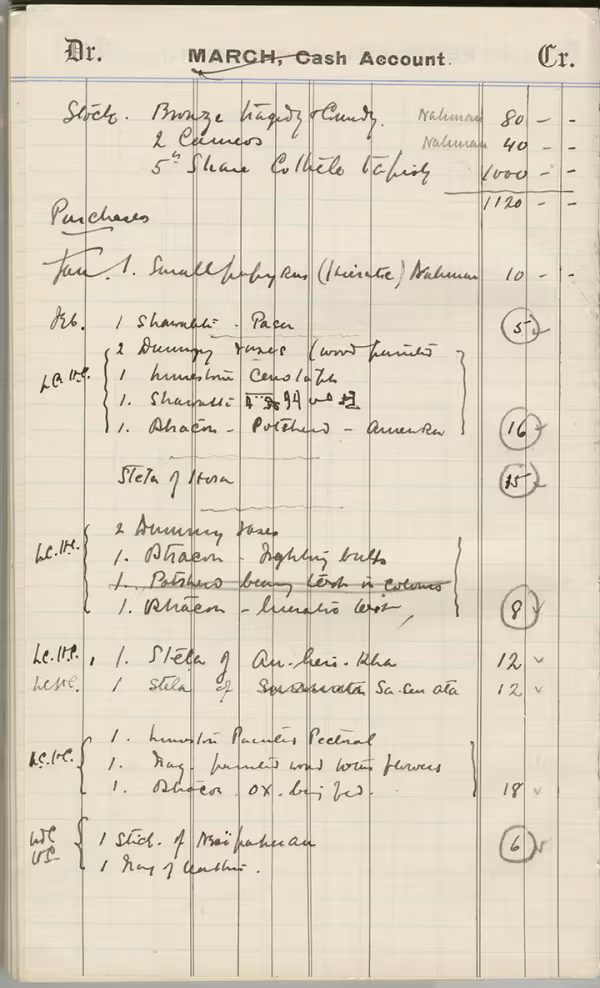 Dr. MARCH, Cash Account. Cr.
Stock. Bronze tragedy & Comedy. Nahman 80 - -
2 Cameos Nahman 40 - -
5th Share 1000 - -
1120 - -
Purchases
Jan. 1. Small papyrus (Hieratic) Nahman 10 - -
Feb. 1 Shawabti - Paser 5
2 Dummy vases (wood painted
L.C. H.C. 1 limestone Cenotaph
1. Shawabti
1. Ostracon - Potsherd - 16
Stela of Hora 15
2 Dummy vases
L.C. H.C. 1. Ostracon - fighting bulls
1. Potsherd bearing text in colours
1. Ostracon - hieratic text, 8
L.C. H.C. 1. Stela of An-her-kha 12
L.C. H.C. 1 Stela of Sa-sen ata 12
1. limestone Painted Pectoral
L.C. H.C. 1. Frag. painted wood lotus flowers
1. Ostracon. ox. being fed. 18
1 Stick. of 6
1 Frag of leather.